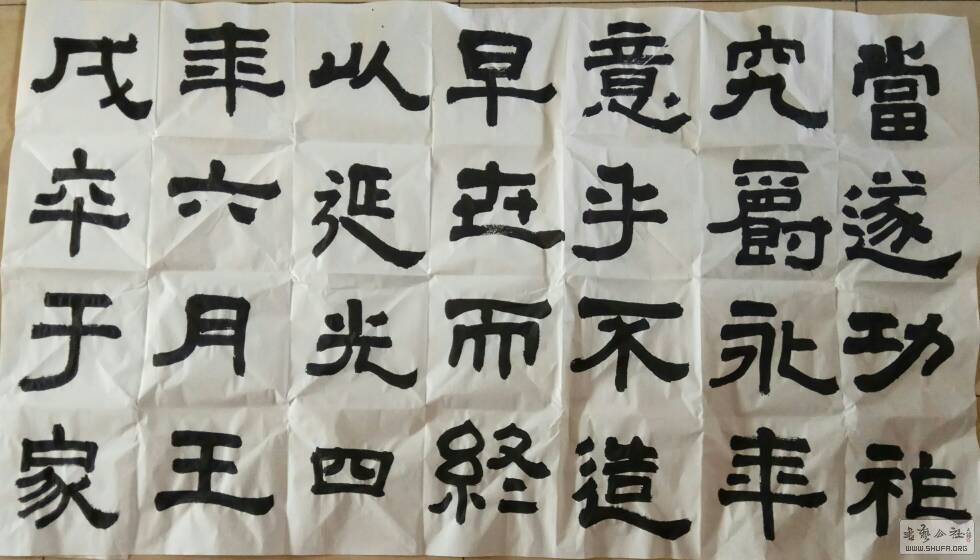 當遂功祚
究爵永年
意乎不造
早世而終
以延光四
年六月壬
戌卒于家
书艺公社
WWW.SHUFA.ORG